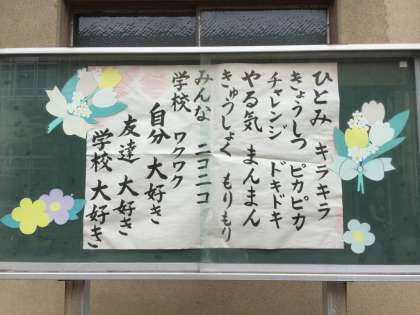 ひとみ キラキラ
きょうしつ ピカピカ
チャレンジ ドキドキ
やる気 まんまん
きゅうしょく もりもり
みんな ニコニコ
学校 ワクワク
自分 大好き
友達 大好き
学校 大好き